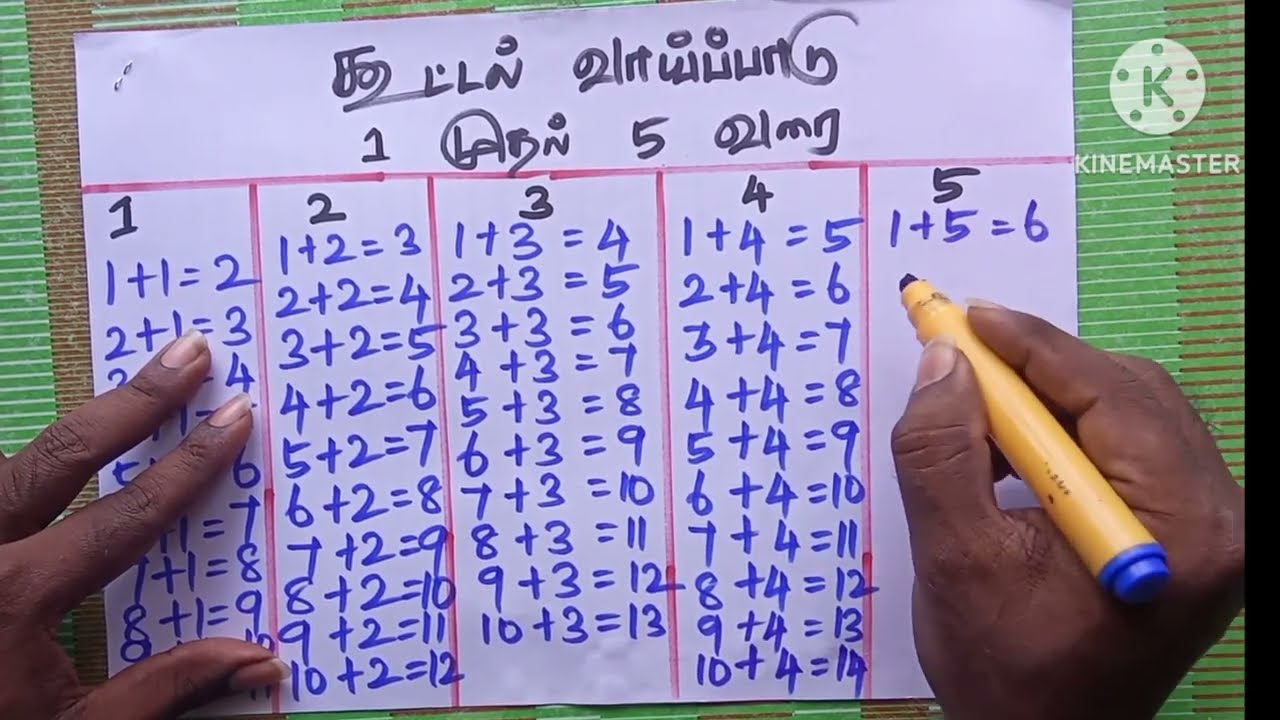 கூட்டல் வாய்ப்பாடு
1 முதல் 5 வரை
K
KINEMASTER
1
1+1=2
2+1=3
=4
6
+1=7
7+1=8
8+1=9
2
1+2=3
2+2=4
3+2=5
4+2=6
5+2=7
6+2=8
7+2=9
8+2=10
9+2=11
10+2=12
3
1+3=4
2+3=5
3+3=6
4+3=7
5+3=8
6+3=9
7+3=10
8+3=11
9+3=12
10+3=13
4
1+4=5
2+4=6
3+4=7
4+4=8
5+4=9
6+4=10
7+4=11
8+4=12
9+4=13
10+4=14
5
1+5=6